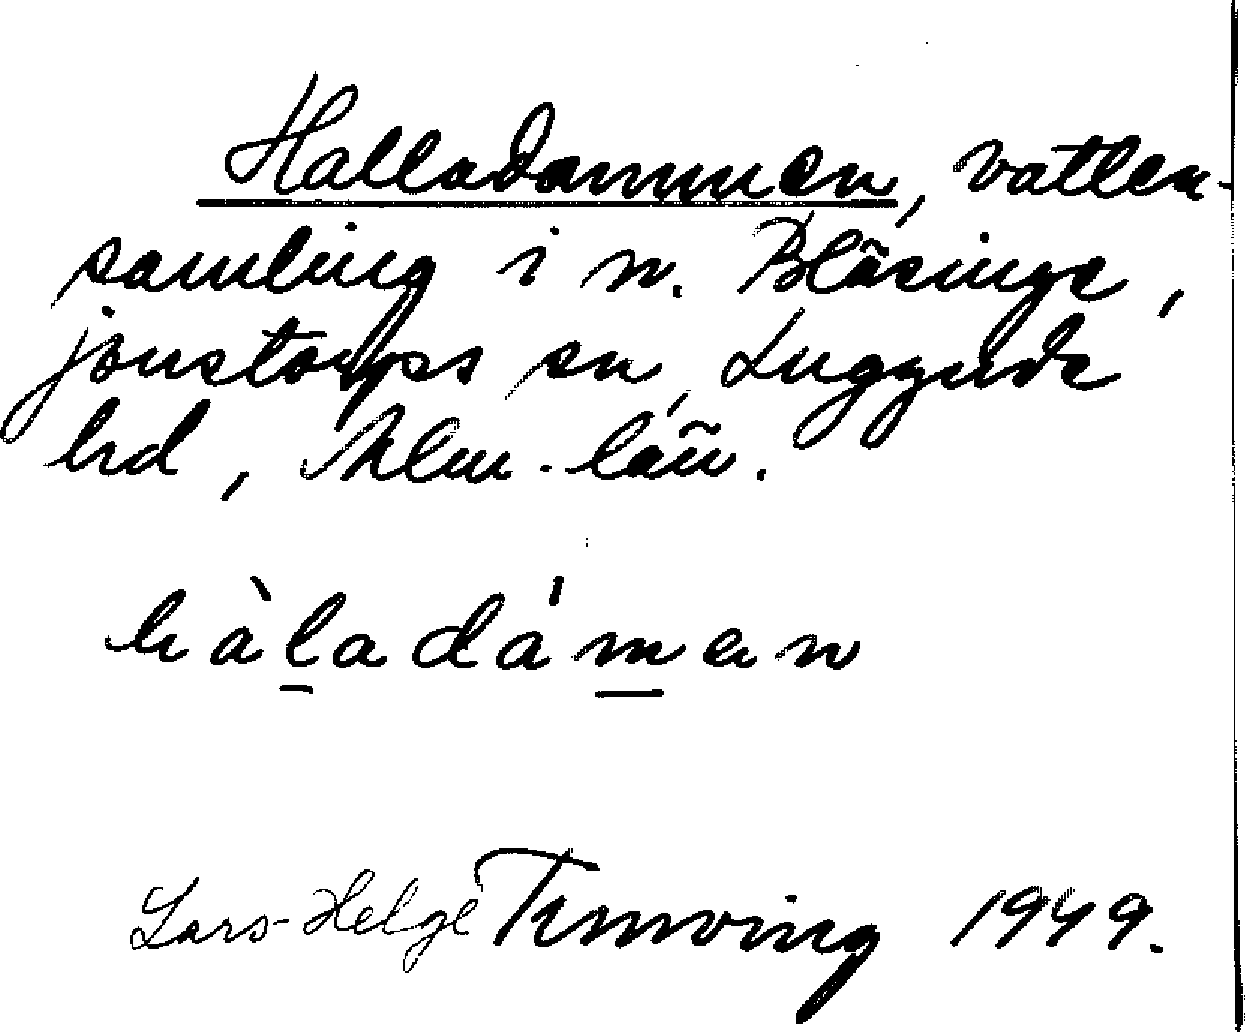 Halladammen, vatten-
samling i n. Bläsinge,
Jonstorps sn, Luggude
hd, Mlm. län.
hàladámen
Lars-Helge 1949.